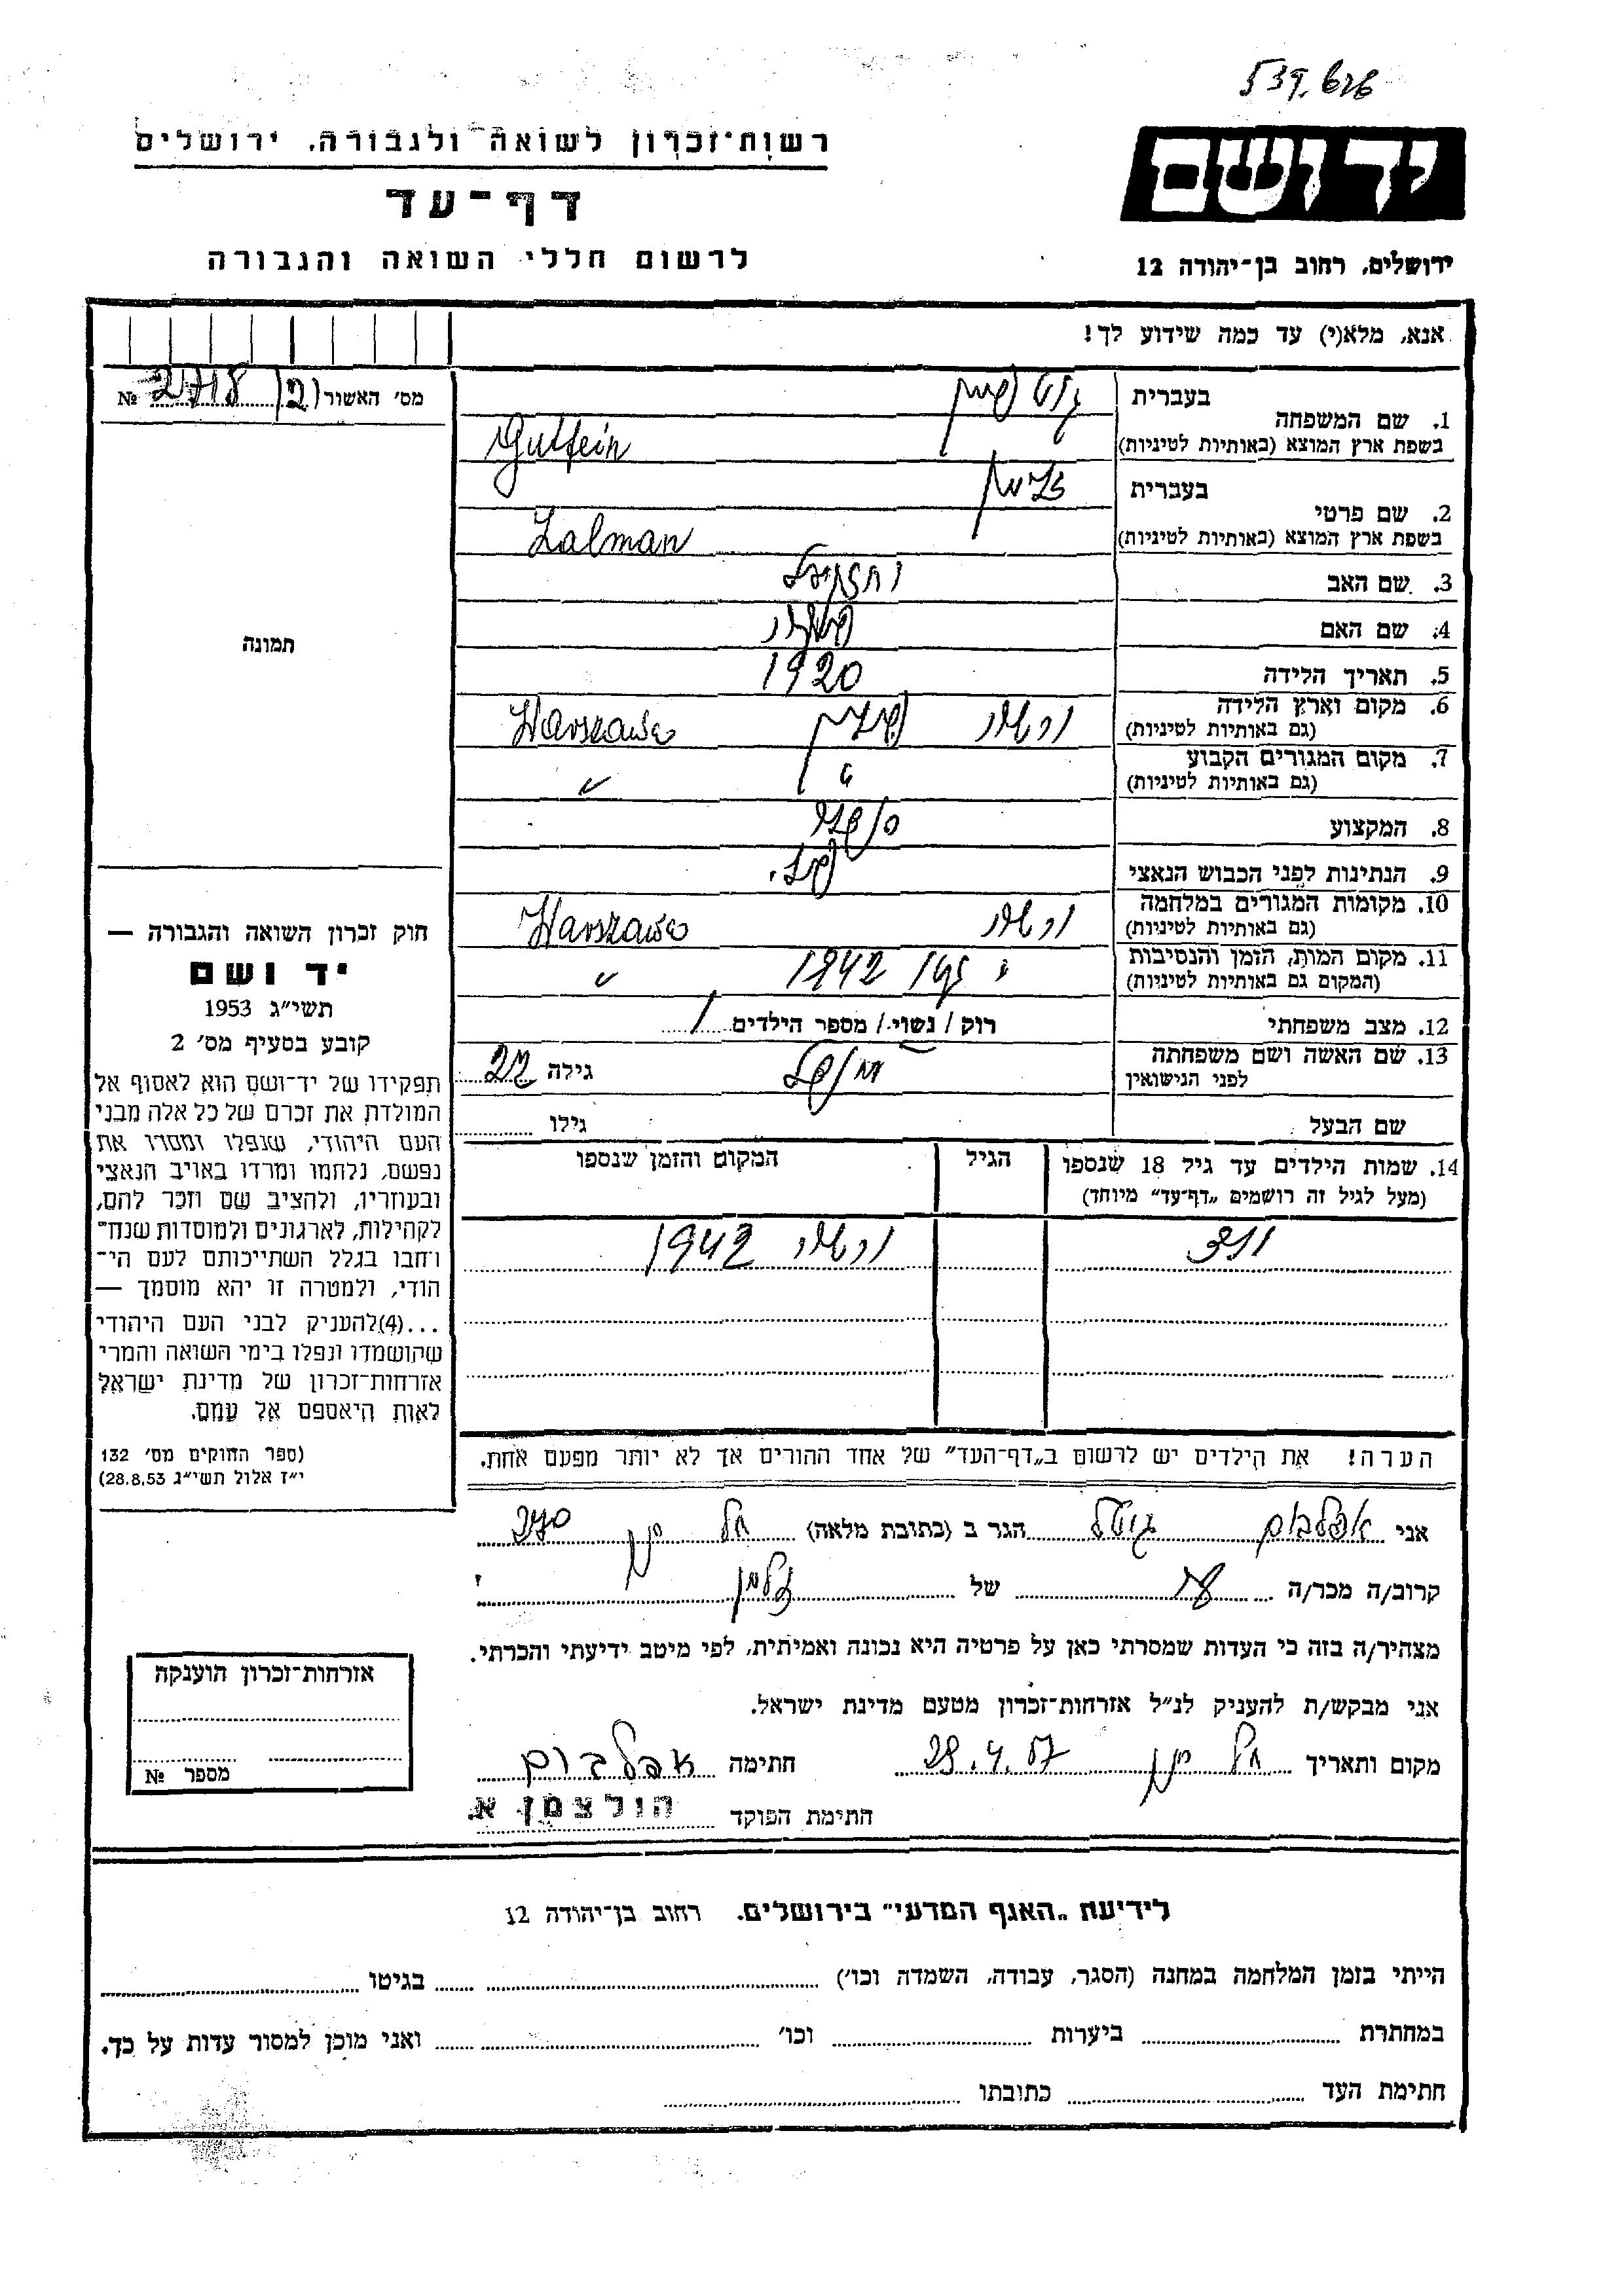 539.626
רשות־זכרון לשואה ולגבורה, ירושלים
יד ושם
דף־עד
לרשום חללי השואה והגבורה
ירושלים, רחוב בן־יהודה 12
אנא, מלא(י) עד כמה שידוע לך!
מס׳ האשור (2) 2718 №
1. שם המשפחה בעברית
בשפת ארץ המוצא (באותיות לטיניות) Gutfein
2. שם פרטי בעברית
בשפת ארץ המוצא (באותיות לטיניות) Zalman
3. שם האב
4. שם האם
5. תאריך הלידה 1920
6. מקום וארץ הלידה ורשה פולין Warszawa
(גם באותיות לטיניות)
7. מקום המגורים הקבוע
(גם באותיות לטיניות)
8. המקצוע
9. הנתינות לפני הכבוש הנאצי פול.
10. מקומות המגורים במלחמה ורשה Warszawa
(גם באותיות לטיניות)
11. מקום המות, הזמן והנסיבות 1942
(המקום גם באותיות לטיניות)
12. מצב משפחתי רוק / נשוי / מספר הילדים 1
13. שם האשה ושם משפחתה גילה 22
לפני הנישואין
שם הבעל גילו
14. שמות הילדים עד גיל 18 שנספו הגיל המקום והזמן שנספו
(מעל לגיל זה רושמים „דף־עד” מיוחד)
ורשה 1942
הערה! את הילדים יש לרשום ב„דף־העד” של אחד ההורים אך לא יותר מפעם אחת.
תמונה
חוק זכרון השואה והגבורה —
יד ושם
תשי״ג 1953
קובע בסעיף מס׳ 2
תפקידו של יד־ושם הוא לאסוף אל
המולדת את זכרם של כל אלה מבני
העם היהודי, שנפלו ומסרו את
נפשם, נלחמו ומרדו באויב הנאצי
ובעוזריו, ולהציב שם וזכר להם,
לקהילות, לארגונים ולמוסדות שנח־
רחבו בגלל השתייכותם לעם הי־
הודי, ולמטרה זו יהא מוסמך —
...(4)להעניק לבני העם היהודי
שהושמדו ונפלו בימי השואה והמרי
אזרחות־זכרון של מדינת ישראל
לאות היאספם אל עמם.
(ספר החוקים מס׳ 132
י״ז אלול תשי״ג 28.8.53)
אני אפלבוים הגר ב (כתובת מלאה) 270
קרוב/ה מכר/ה של זלמן
מצהיר/ה בזה כי העדות שמסרתי כאן על פרטיה היא נכונה ואמיתית, לפי מיטב ידיעתי והכרתי.
אני מבקש/ת להעניק לנ״ל אזרחות־זכרון מטעם מדינת ישראל.
מקום ותאריך 28.4.57 חתימה אפלבוים
חתימת הפוקד הולצמן א.
אזרחות־זכרון הוענקה
מספר №
לידיעת „האגף המדעי” בירושלים, רחוב בן־יהודה 12
הייתי בזמן המלחמה במחנה (הסגר, עבודה, השמדה וכו׳) בגיטו
במחתרת ביערות וכו׳ ואני מוכן למסור עדות על כך.
חתימת העד כתובתו